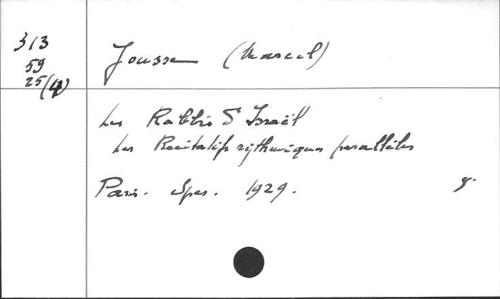 313
59
25(4)
Jousse (Marcel)
Les Rabbis d'Israël
Les Récitatifs rythmiques parallèles
Paris. Spes. 1929.
8.